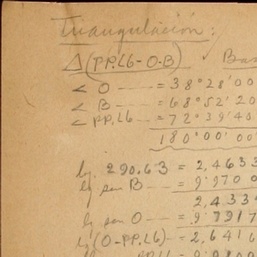 Triangulación:
Δ (PP.L6-O-B) Bas
< O —— = 38°28'00
< B —— = 68°52'20
< PP.L6 —— = 72°39'40
180°00'00
lg. 290.63 = 2,4633
lg sen B —— = 9,9700
2,433
lg sen O —— = 9,7917
lg (O-PP.L6) —— = 2,6416